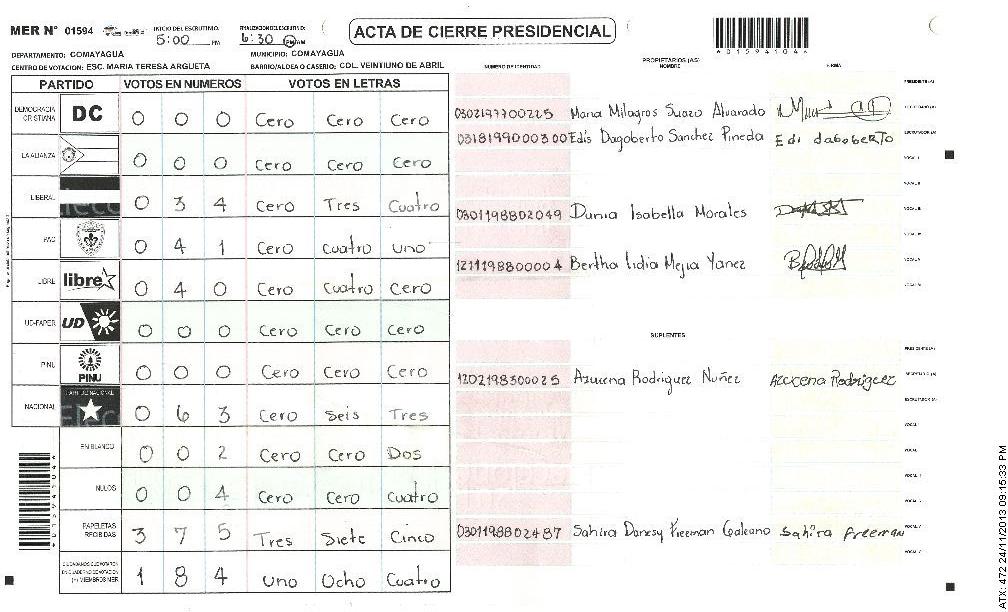 MER N° 01594
INICIO DEL ESCRUTINIO:
5:00 PM
FINALIZACION DEL ESCRUTINIO:
6:30 PM/AM
ACTA DE CIERRE PRESIDENCIAL
DEPARTAMENTO: COMAYAGUA
MUNICIPIO: COMAYAGUA
CENTRO DE VOTACION: ESC. MARIA TERESA ARGUETA
BARRIO/ALDEA O CASERIO: COL. VEINTIUNO DE ABRIL
PARTIDO VOTOS EN NUMEROS VOTOS EN LETRAS
DEMOCRACIA CRISTIANA DC 0 0 0 Cero Cero Cero
LA ALIANZA 0 0 0 Cero Cero Cero
LIBERAL 0 3 4 Cero Tres Cuatro
PAC 0 4 1 Cero Cuatro uno
LIBRE libre 0 4 0 Cero Cuatro Cero
UD-FAPER UD 0 0 0 Cero Cero Cero
PINU PINU 0 0 0 Cero Cero Cero
NACIONAL 0 6 3 Cero Seis Tres
EN BLANCO 0 0 2 Cero Cero Dos
NULOS 0 0 4 Cero Cero Cuatro
PAPELETAS RECIBIDAS 3 7 5 Tres Siete Cinco
CIUDADANOS QUE VOTARON
EN CUADERNO DE VOTACION
(+) MIEMBROS MER 1 8 4 uno Ocho Cuatro
NUMERO DE IDENTIDAD
PROPIETARIOS (AS)
NOMBRE
FIRMA
PRESIDENTE (A)
0302197700225 Maria Milagros Suazo Alvarado SECRETARIO (A)
0318199000300 Edis Dagoberto Sanchez Pineda Edi dagoberto ESCRUTADOR (A)
0301198802049 Dunia Isabella Morales
1211198800004 Bertha Lidia Mejia Yanez
SUPLENTES
PRESIDENTE (A)
1202198300025 Azucena Rodriguez Nuñez Azucena Rodriguez SECRETARIO (A)
ESCRUTADOR (A)
0301198802487 Sahira Danesy Freeman Galeano Sahira freeman
ATX: 472 24/11/2013 09:15:33 PM